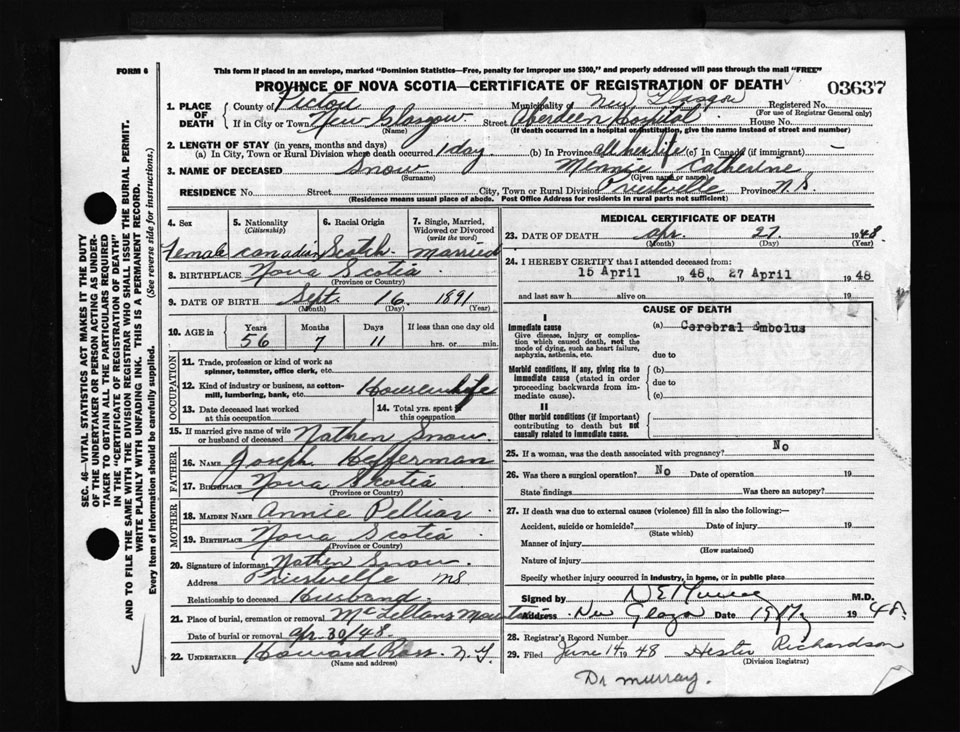 FORM 6
This form if placed in an envelope, marked "Dominion Statistics—Free, penalty for improper use $300," and properly addressed will pass through the mail "FREE"
PROVINCE OF NOVA SCOTIA—CERTIFICATE OF REGISTRATION OF DEATH
03637
1. PLACE OF DEATH
County of Pictou Municipality of New Glasgow Registered No.
(For use of Registrar General only)
If in City or Town New Glasgow Street Aberdeen Hospital House No.
(Name) (If death occurred in a hospital or institution, give the name instead of street and number)
2. LENGTH OF STAY (in years, months and days)
(a) In City, Town or Rural Division where death occurred 1 day. (b) In Province all her life (c) In Canada (if immigrant) —
3. NAME OF DECEASED Snow. Minnie Catherine
(Surname) (Given name or names)
RESIDENCE No. Street City, Town or Rural Division Priestville Province N.S.
(Residence means usual place of abode. Post Office Address for residents in rural parts not sufficient)
4. Sex Female
5. Nationality (Citizenship) Canadian
6. Racial Origin Scotch.
7. Single, Married, Widowed or Divorced (write the word) Married
8. BIRTHPLACE Nova Scotia
(Province or Country)
9. DATE OF BIRTH Sept. 16 1891
(Month) (Day) (Year)
10. AGE in Years 56 Months 7 Days 11 If less than one day old hrs. or min.
OCCUPATION
11. Trade, profession or kind of work as spinner, teamster, office clerk, etc.
12. Kind of industry or business, as cotton-mill, lumbering, bank, etc. Housewife
13. Date deceased last worked at this occupation
14. Total yrs. spent in this occupation
15. If married give name of wife or husband of deceased Nathen Snow.
FATHER
16. NAME Joseph Hefferman
17. BIRTHPLACE Nova Scotia
(Province or Country)
MOTHER
18. MAIDEN NAME Annie
19. BIRTHPLACE Nova Scotia
(Province or Country)
20. Signature of informant Nathen Snow.
Address Priestville NS
Relationship to deceased Husband.
21. Place of burial, cremation or removal McLellans Mountain
Date of burial or removal Apr. 30/48.
22. UNDERTAKER Howard Ross. N.G.
(Name and address)
MEDICAL CERTIFICATE OF DEATH
23. DATE OF DEATH Apr. 27. 1948.
(Month) (Day) (Year)
24. I HEREBY CERTIFY that I attended deceased from:
15 April 1948 to 27 April 1948
and last saw h alive on 19
CAUSE OF DEATH
I
Immediate cause
Give disease, injury or complication which caused death, not the mode of dying, such as heart failure, asphyxia, asthenia, etc.
(a) Cerebral Embolus
due to
Morbid conditions, if any, giving rise to immediate cause (stated in order proceeding backwards from immediate cause).
(b)
due to
(c)
II
Other morbid conditions (if important) contributing to death but not causally related to immediate cause.
25. If a woman, was the death associated with pregnancy? No
26. Was there a surgical operation? No Date of operation 19
State findings Was there an autopsy?
27. If death was due to external causes (violence) fill in also the following:—
Accident, suicide or homicide? Date of injury 19
(State which)
Manner of injury
(How sustained)
Nature of injury
Specify whether injury occurred in industry, in home, or in public place
Signed by N E Murray M.D.
Address New Glasgow Date 19 1948.
28. Registrar's Record Number
29. Filed June 14 1948 Hester Richardson
(Division Registrar)
Dr Murray.
SEC. 46—VITAL STATISTICS ACT MAKES IT THE DUTY
OF THE UNDERTAKER OR PERSON ACTING AS UNDER-
TAKER TO OBTAIN ALL THE PARTICULARS REQUIRED
IN THE "CERTIFICATE OF REGISTRATION OF DEATH"
AND TO FILE THE SAME WITH THE DIVISION REGISTRAR WHO SHALL ISSUE THE BURIAL PERMIT.
WRITE PLAINLY WITH UNFADING INK. THIS IS A PERMANENT RECORD.
Every item of Information should be carefully supplied. (See reverse side for instructions.)